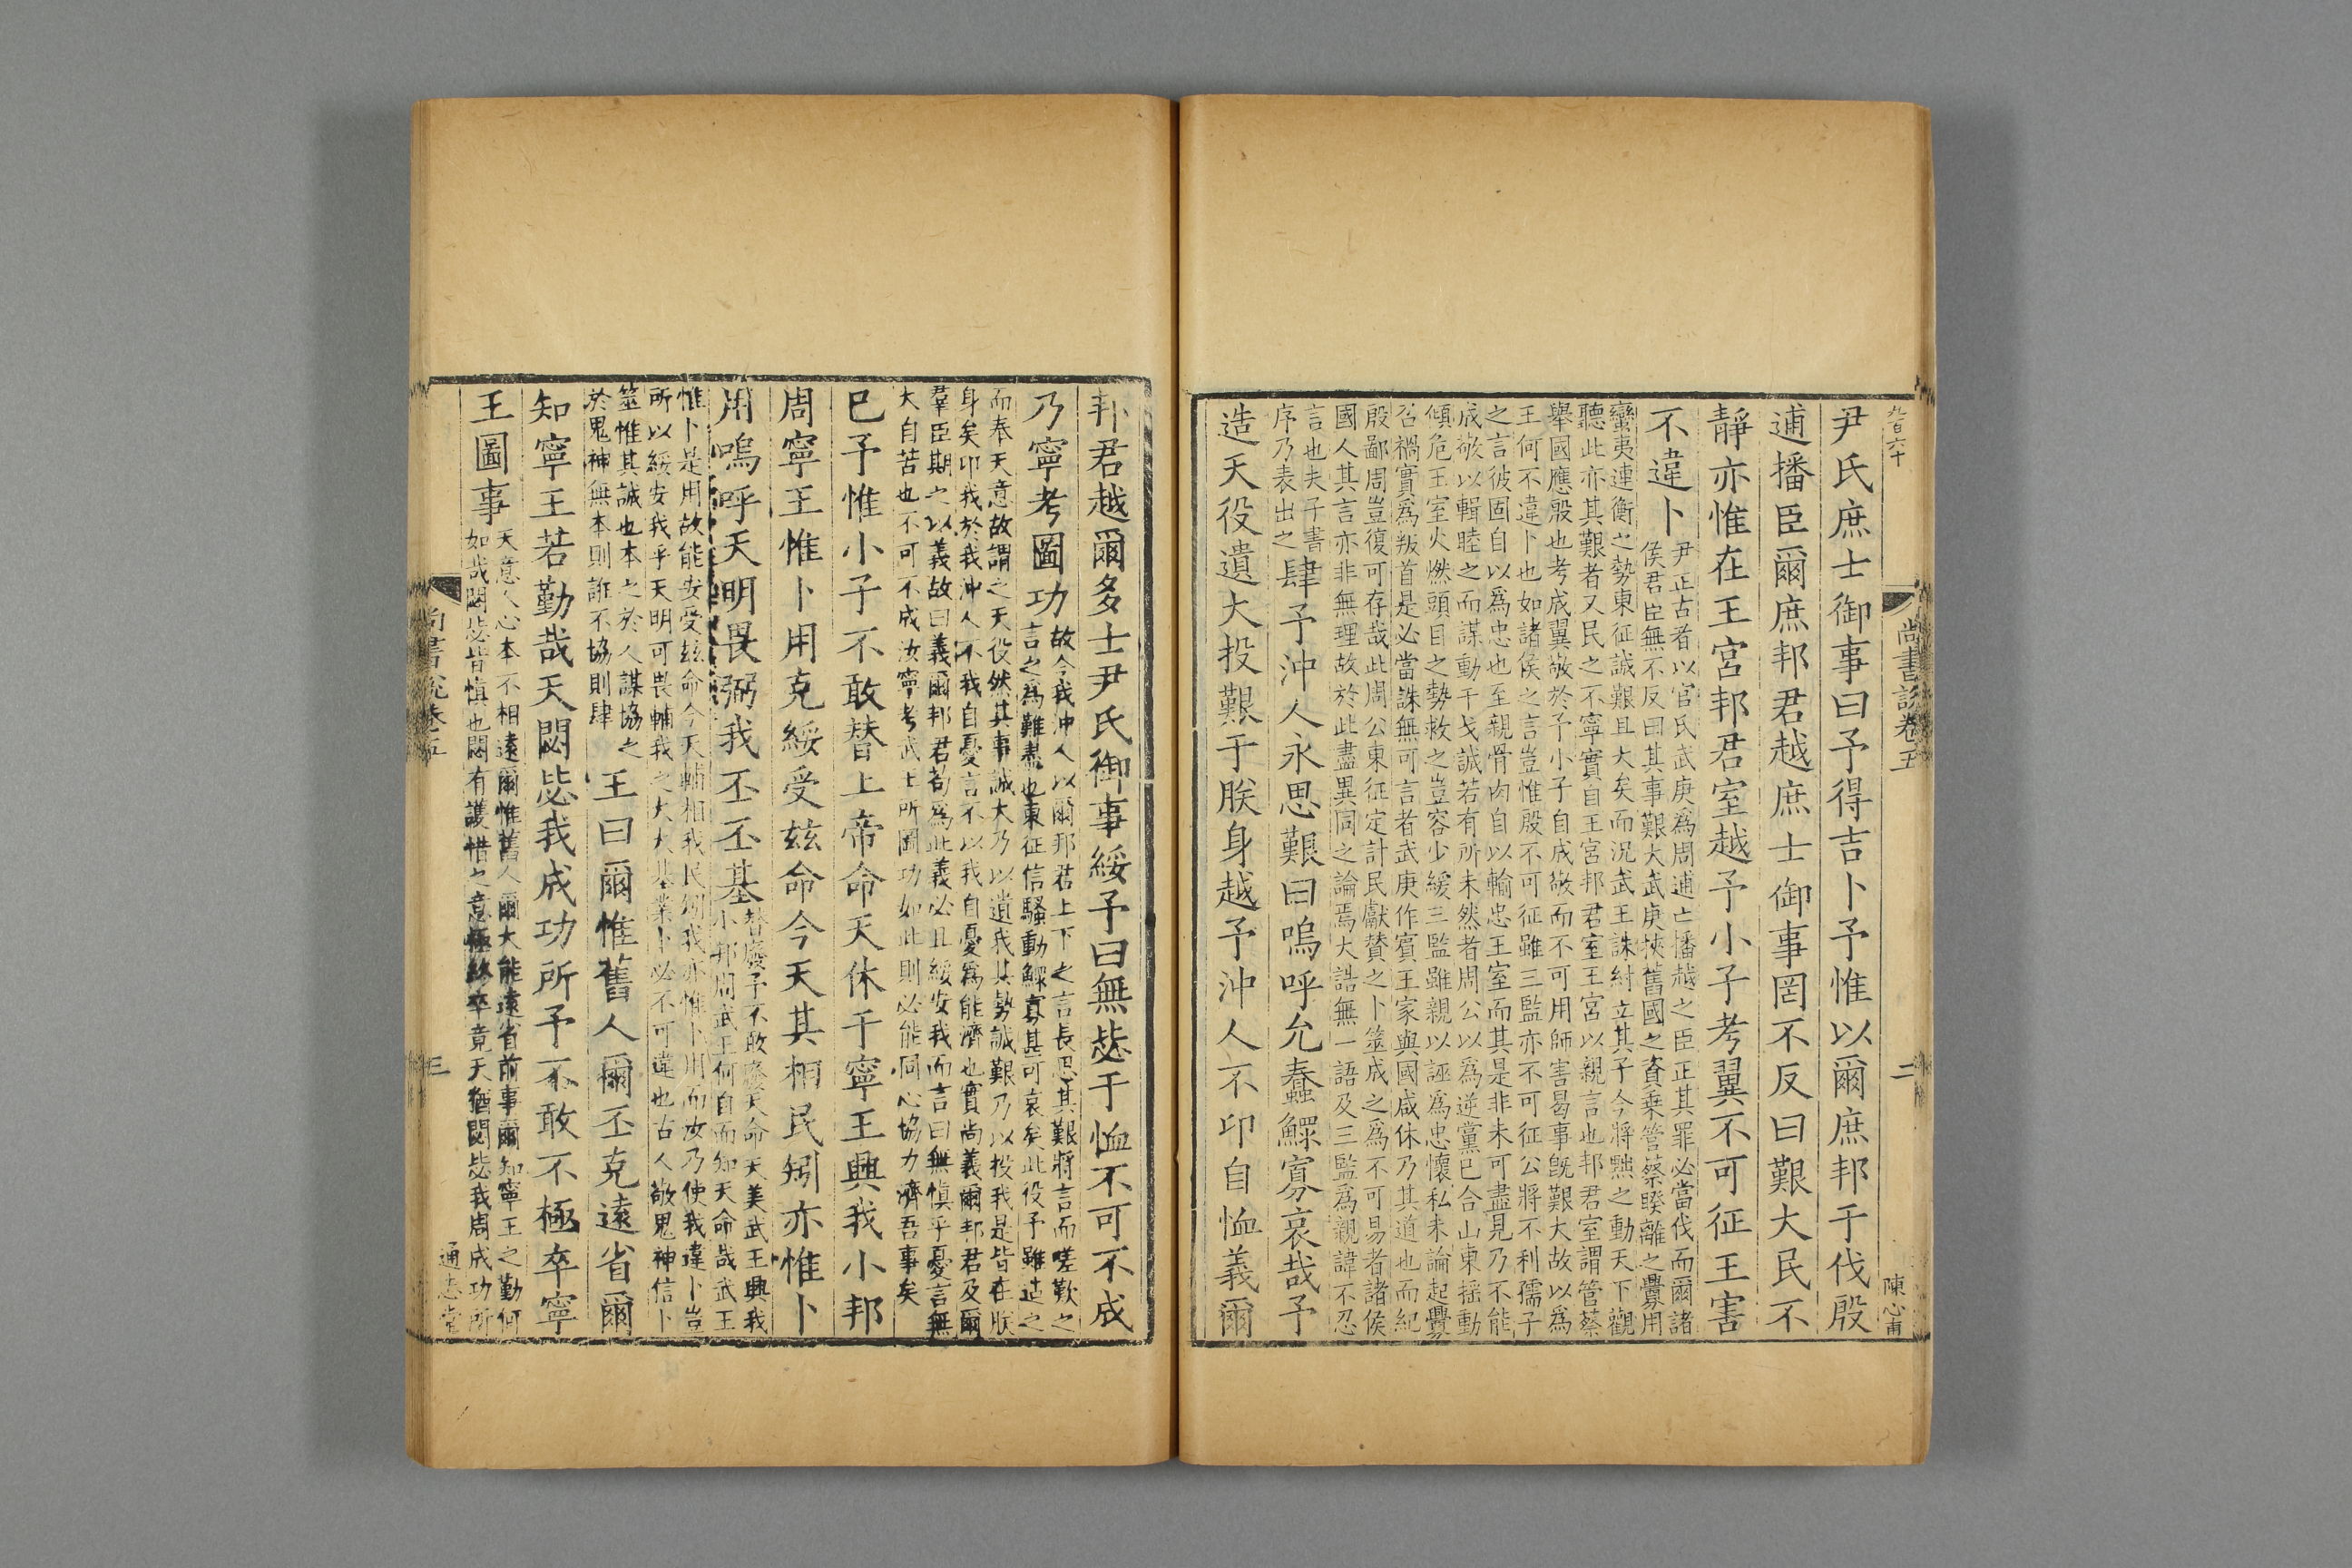 九百六十
尚書説卷五
二
陳心甫
尹氏庶士御事曰予得吉卜予惟以爾庶邦于伐殷
逋播臣爾庶邦君越庶士御事罔不反曰艱大民不
靜亦惟在王宮邦君室越予小子考翼不可征王害
不違卜
尹正古者以官氏武庚爲周逋亡播越之臣正其罪必當伐而爾諸
侯君臣無不反曰其事艱大武庚挾舊國之資乗管蔡睽離之釁用
蠻夷連衡之勢東征誠艱且大矣而況武王誅紂立其子今將黜之動天下觀
聽此亦其艱者又民之不寧實自王宮邦君室王宮以親言也邦君室謂管蔡
舉國應殷也考成翼敬於予小子自成敬而不可用師害曷事旣艱大故以爲
王何不違卜也如諸侯之言豈惟殷不可征雖三監亦不可征公將不利孺子
之言彼固自以爲忠也至親骨肉自以輸忠王室而其是非未可盡見乃不能
成敬以輯睦之而謀動干戈誠若有所未然者周公以爲逆黨已合山東揺動
傾危王室火燃頭目之勢救之豈容少緩三監雖親以誣爲忠懷私未論起釁
召禍實爲叛首是必當誅無可言者武庚作賓王家與國咸休乃其道也而紀
殷鄙周豈復可存哉此周公東征定計民獻賛之卜筮成之爲不可易者諸侯
國人其言亦非無理故於此盡異同之論焉大誥無一語及三監爲親諱不忍
言也夫子書
序乃表出之
肆予沖人永思艱曰嗚呼允蠢鰥寡哀哉予
造天役遺大投艱于朕身越予沖人不卬自恤義爾
邦君越爾多士尹氏御事綏予曰無毖于恤不可不成
乃寧考圖功
故今我沖人以爾邦君上下之言長思其艱將言而嗟歎之
言之爲難盡也東征信騷動鰥寡甚可哀矣此役予雖造之
而奉天意故謂之天役然其事誠大乃以遺我其勢誠艱乃以投我是皆在朕
身矣卬我於我沖人不我自憂言不以我自憂爲能濟也實尚義爾邦君及爾
羣臣期之以義故曰義爾邦君苟爲此義必且綏安我而言曰無愼乎憂言無
大自苦也不可不成汝寧考武王所圖功如此則必能同心協力濟吾事矣
已予惟小子不敢替上帝命天休于寧王興我小邦
周寧王惟卜用克綏受玆命今天其相民矧亦惟卜
用嗚呼天明畏弼我丕丕基
替廢予不敢廢天命天美武王興我
小邦周武王何自而知天命哉武王
惟卜是用故能安受玆命今天輔相我民矧我亦惟卜用而汝乃使我違卜豈
所以綏安我乎天明可畏輔我之大大基業卜必不可違也古人敬鬼神信卜
筮惟其誠也本之於人謀協之
於鬼神無本則誑不協則肆
王曰爾惟舊人爾丕克遠省爾
知寧王若勤哉天閟毖我成功所予不敢不極卒寧
王圖事
天意人心本不相遠爾惟舊人爾大能遠省前事爾知寧王之勤何
如哉閟毖皆愼也閟有護惜之意極終卒竟天猶閟毖我周成功所
尚書説卷五
三
通志堂